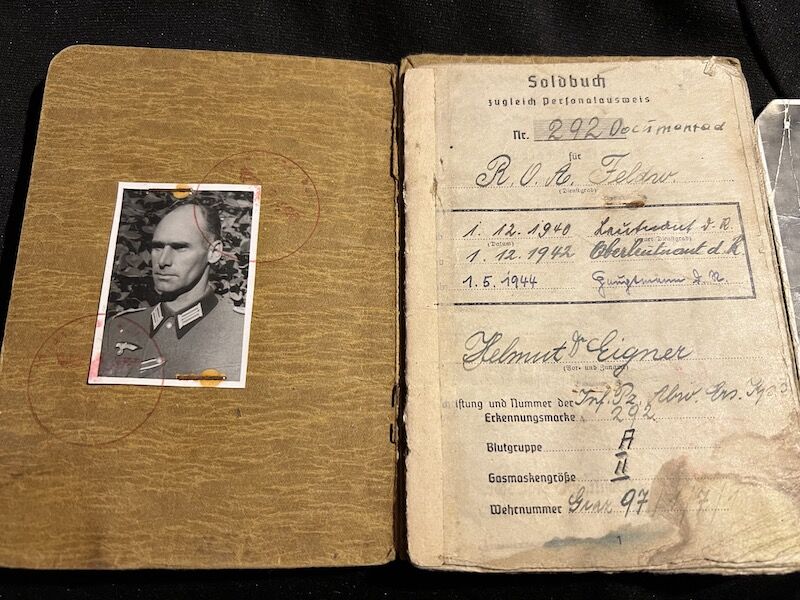 Soldbuch
zugleich Personalausweis
Nr. 292
für
R. O. A. Feldw.
(Dienstgrad)
1. 12. 1940 Leutnant d. R.
(Datum)
1. 12. 1942 Oberleutnant d. R.
1. 5. 1944 Hauptmann d. R.
Helmut Dr Eigner
(Vor- und Zuname)
iftung und Nummer der Inf. Pz. Abw. Ers. Kp.
Erkennungsmarke 292
Blutgruppe A
Gasmaskengröße II
Wehrnummer Graz 97/
1